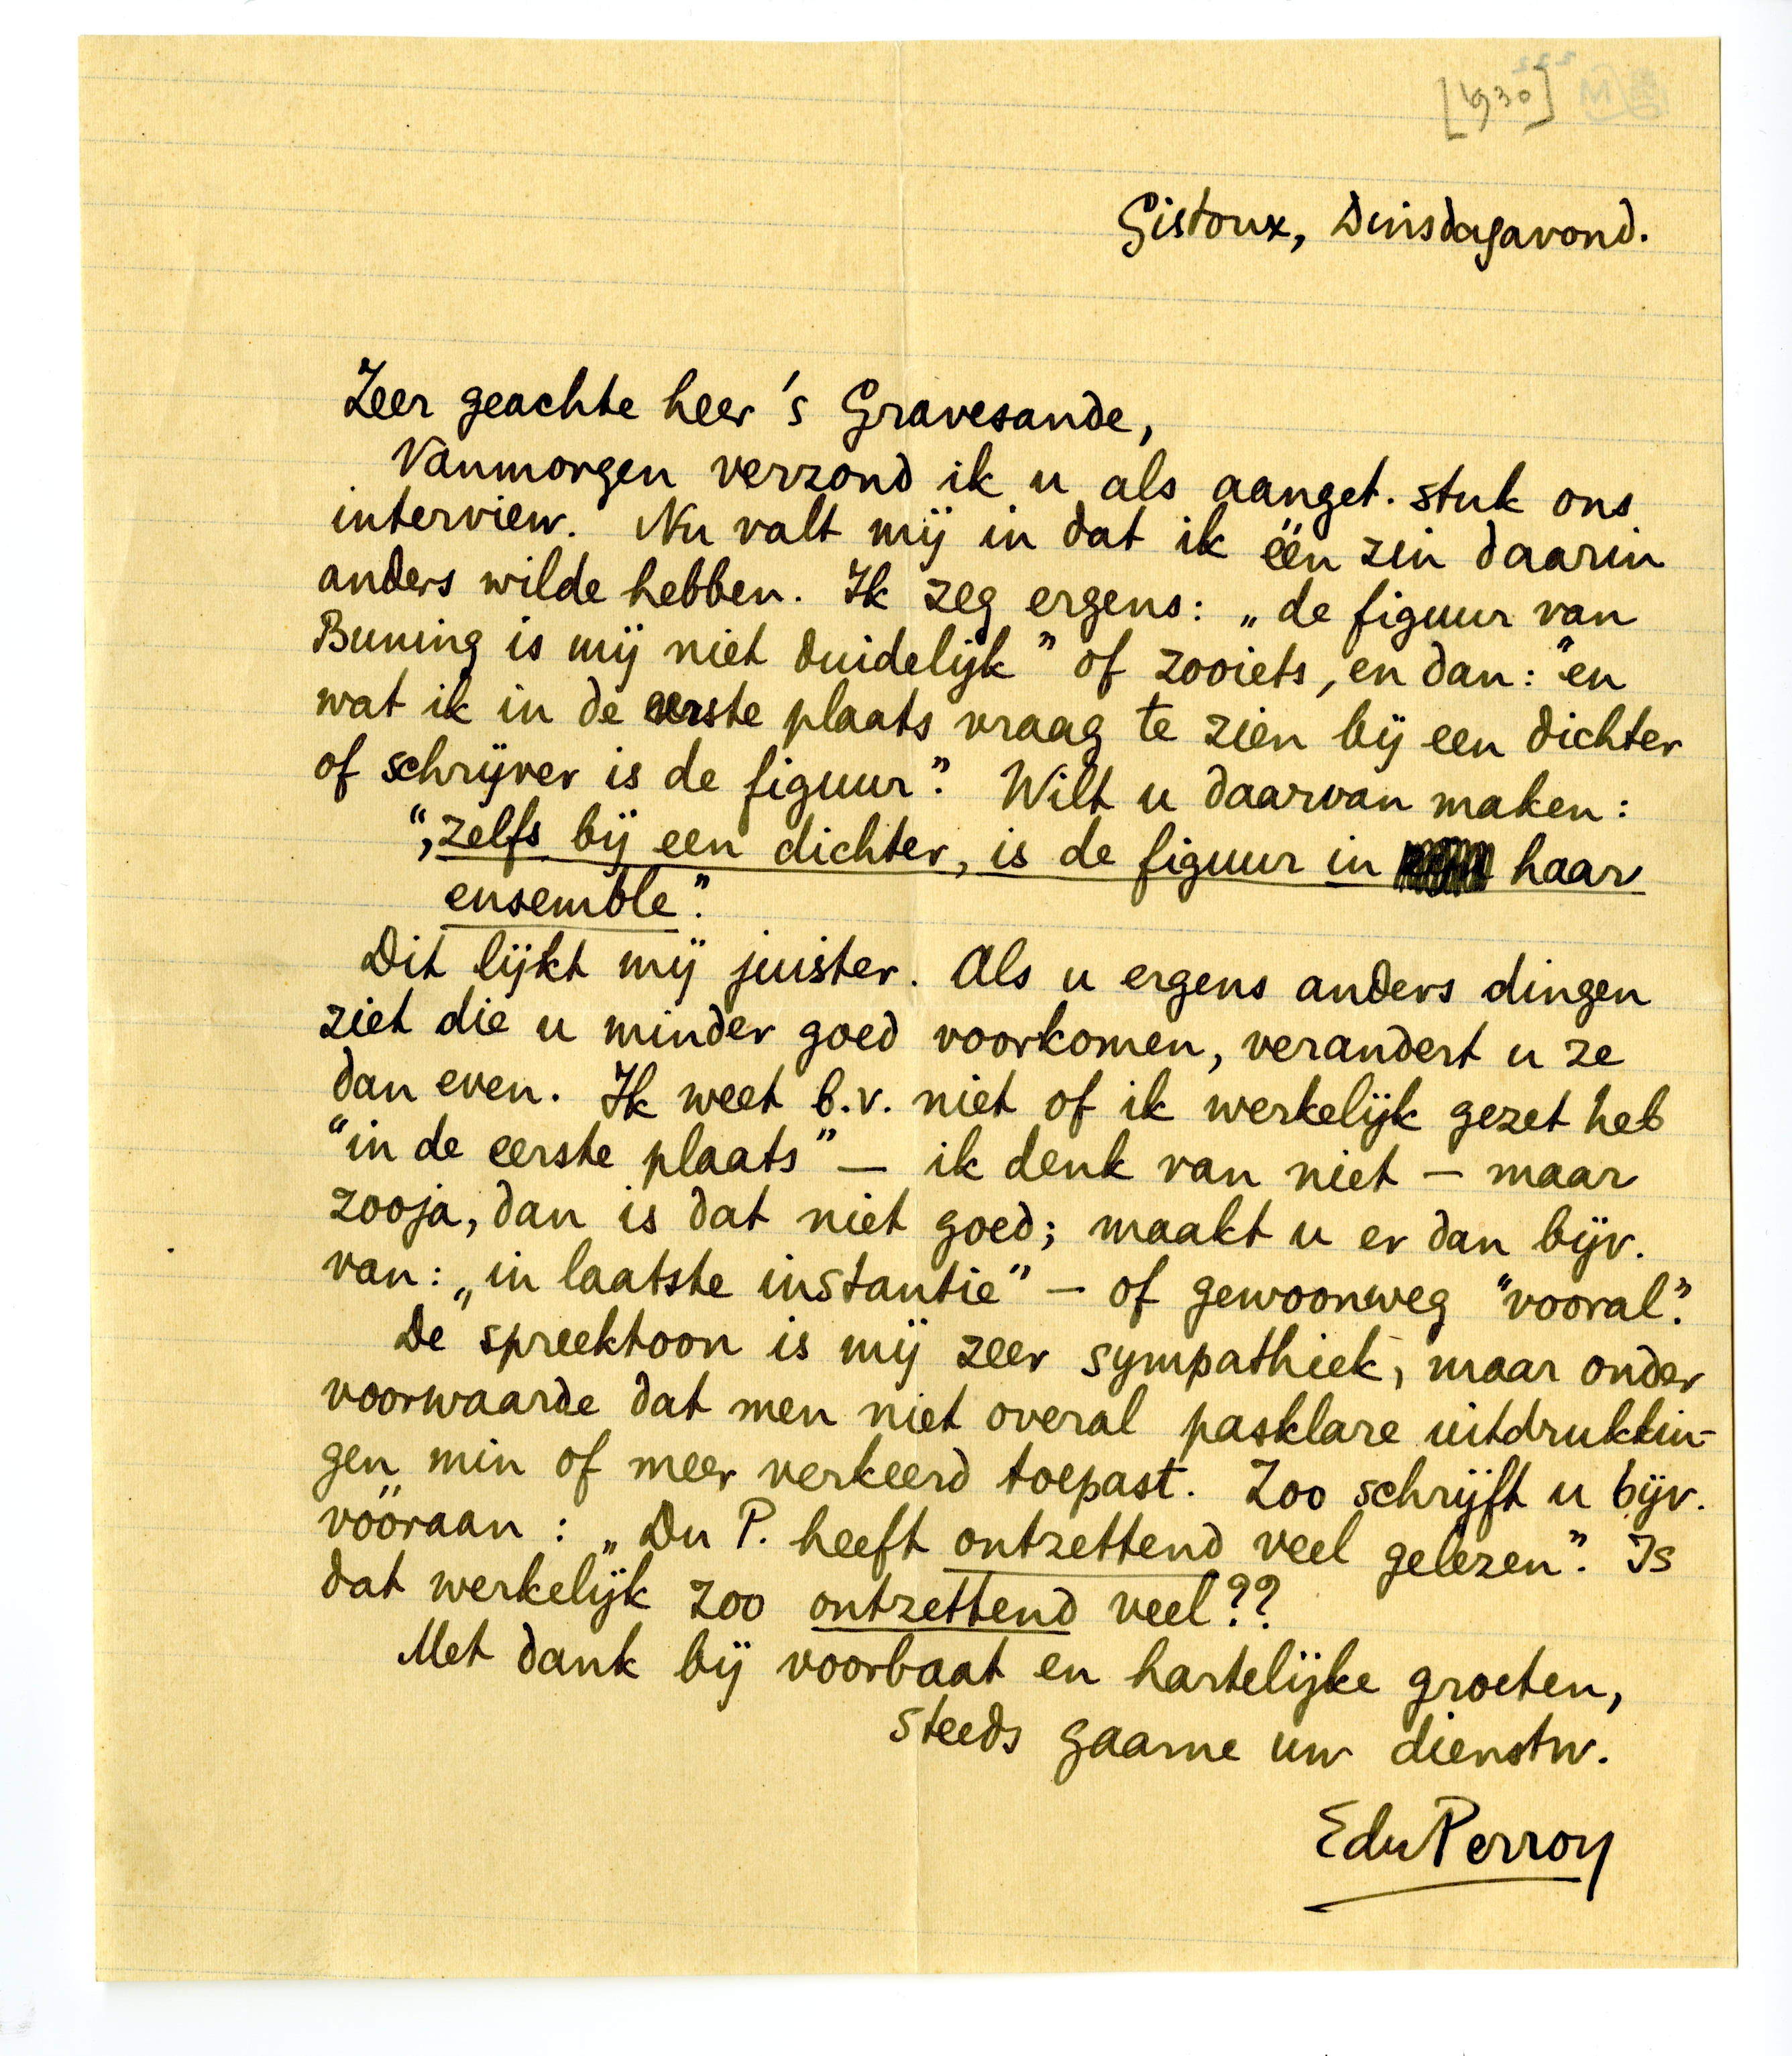 [1930]
Gistoux, Dinsdagavond.
Zeer geachte heer 's Gravesande,
Vanmorgen verzond ik u als aanget. stuk ons
interview. Nu valt mij in dat ik één zin daarin
anders wilde hebben. Ik zeg ergens: „de figuur van
Buning is mij niet duidelijk” of zooiets, en dan: “en
wat ik in de eerste plaats vraag te zien bij een dichter
of schrijver is de figuur”. Wilt u daarvan maken:
“, zelfs bij een dichter, is de figuur in haar
ensemble”.
Dit lijkt mij juister. Als u ergens anders dingen
ziet die u minder goed voorkomen, verandert u ze
dan even. Ik weet b.v. niet of ik werkelijk gezet heb
“in de eerste plaats” — ik denk van niet — maar
zooja, dan is dat niet goed; maakt u er dan bijv.
van: „in laatste instantie” — of gewoonweg “vooral”.
De spreektoon is mij zeer sympathiek, maar onder
voorwaarde dat men niet overal pasklare uitdrukkin-
gen min of meer verkeerd toepast. Zoo schrijft u bijv.
vóóraan: „Du P. heeft ontzettend veel gelezen”. Is
dat werkelijk zoo ontzettend veel??
Met dank bij voorbaat en hartelijke groeten,
steeds gaarne uw dienstw.
EduPerron